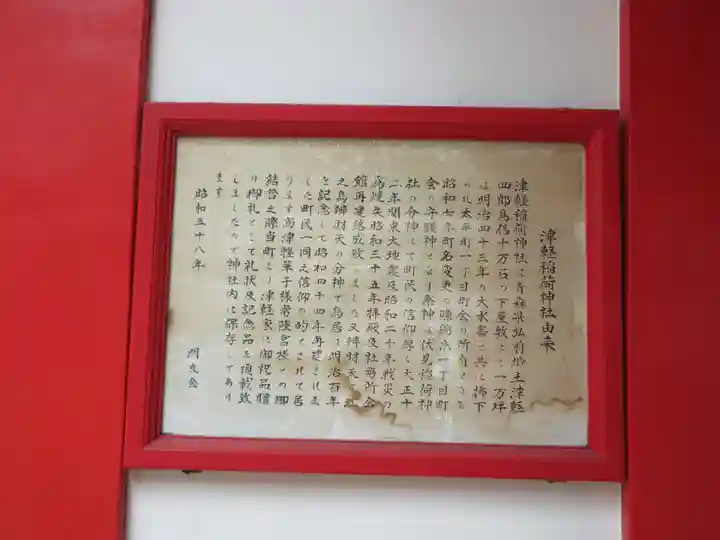 津軽稲荷神社由来
津軽稲荷神社は青森県弘前城主津軽
四郎為信十万石の下屋敷として一万坪
は明治四十三年の大水害と共に払下
の北太平町一丁目町会の所有となる
昭和七年町名変更の際錦糸一丁目町
会の守護神となり祭神は伏見稲荷神
社の分神にて町民の信仰厚く大正十
二年関東大地震及昭和二十年戦災の
為焼失昭和三十五年拝殿及社務所会
館再建落成致しました又辨財天も
之島辨財天の分神で鳥居も明治百年
を記念して昭和四十四年再建されま
した町民一同之信仰の的とされて居
ります尚津軽華子様常陸宮様との御
結婚之際当町より津軽家に御祝品贈
り御礼として礼状及記念品を頂戴致
しましたので神社内に保存してあり
ます
昭和五十八年
潮友会